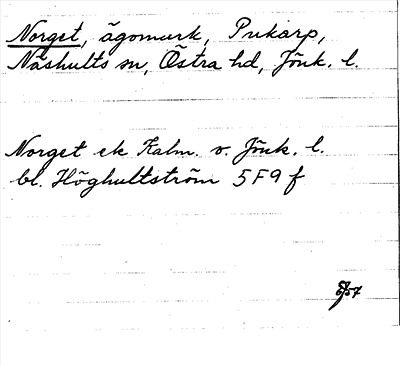 Norget, ägomark, Pukarp,
Näshults sn, Östra hd, Jönk. l.
Norget ek Kalm. o. Jönk. l.
bl. Höghultström 5F9f